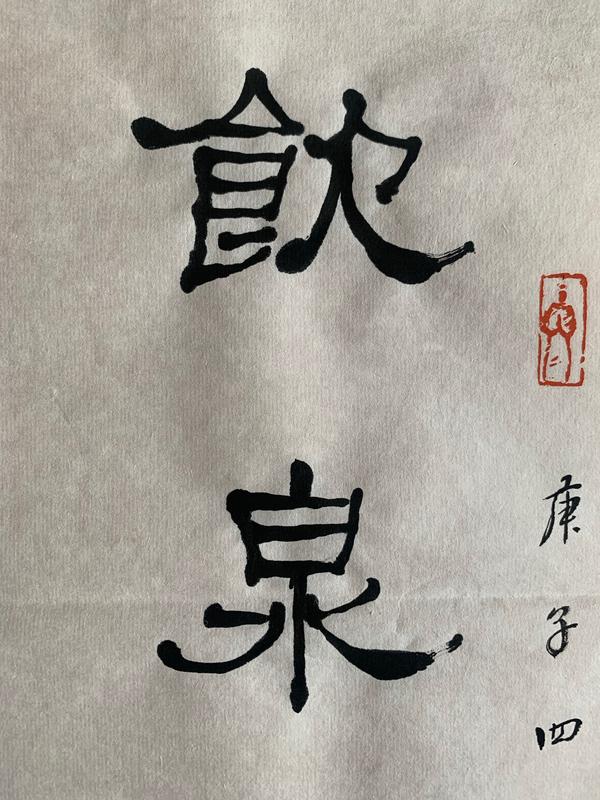 飲泉
庚子四